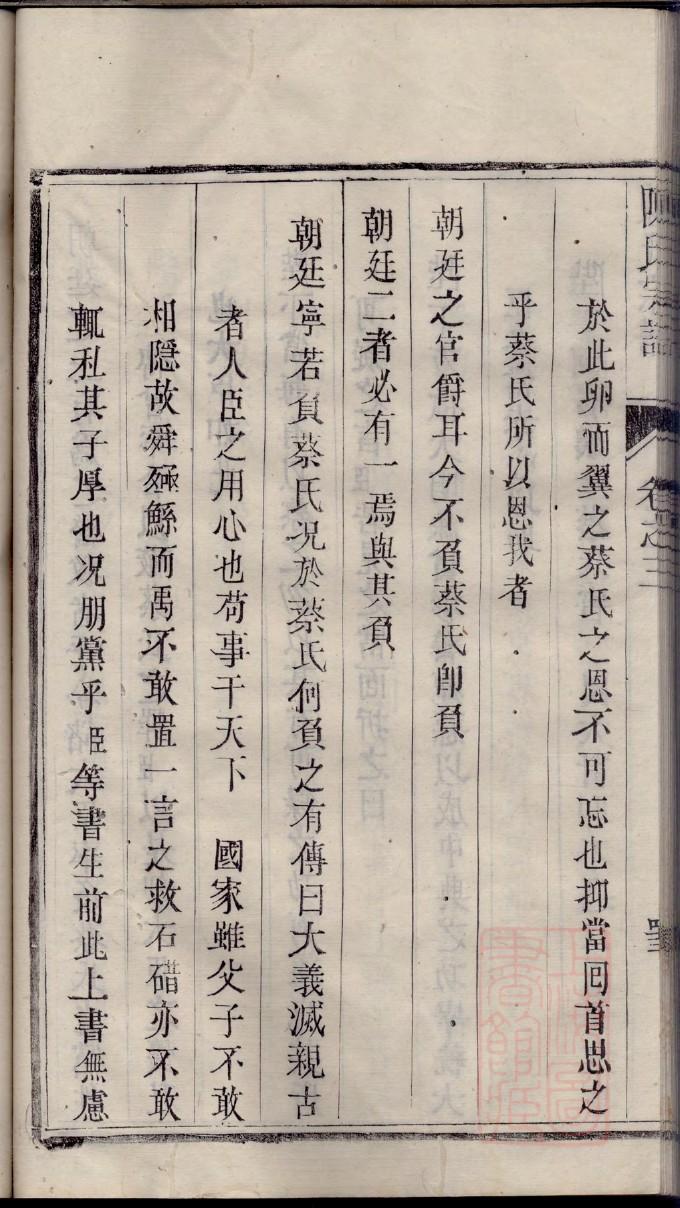 陳氏宗譜 卷之三
於此卵而翼之蔡氏之恩不可忘也抑當囘首思之
乎蔡氏所以恩我者
朝廷之官爵耳今不負蔡氏卽負
朝廷二者必有一焉與其負
朝廷寧若負蔡氏况於蔡氏何負之有傳曰大義滅親古
者人臣之用心也苟事干天下 國家雖父子不敢
相隱故舜殛鯀而禹不敢置一言之救石碏亦不敢
輒私其子厚也况朋黨乎臣等書生前此上書無慮